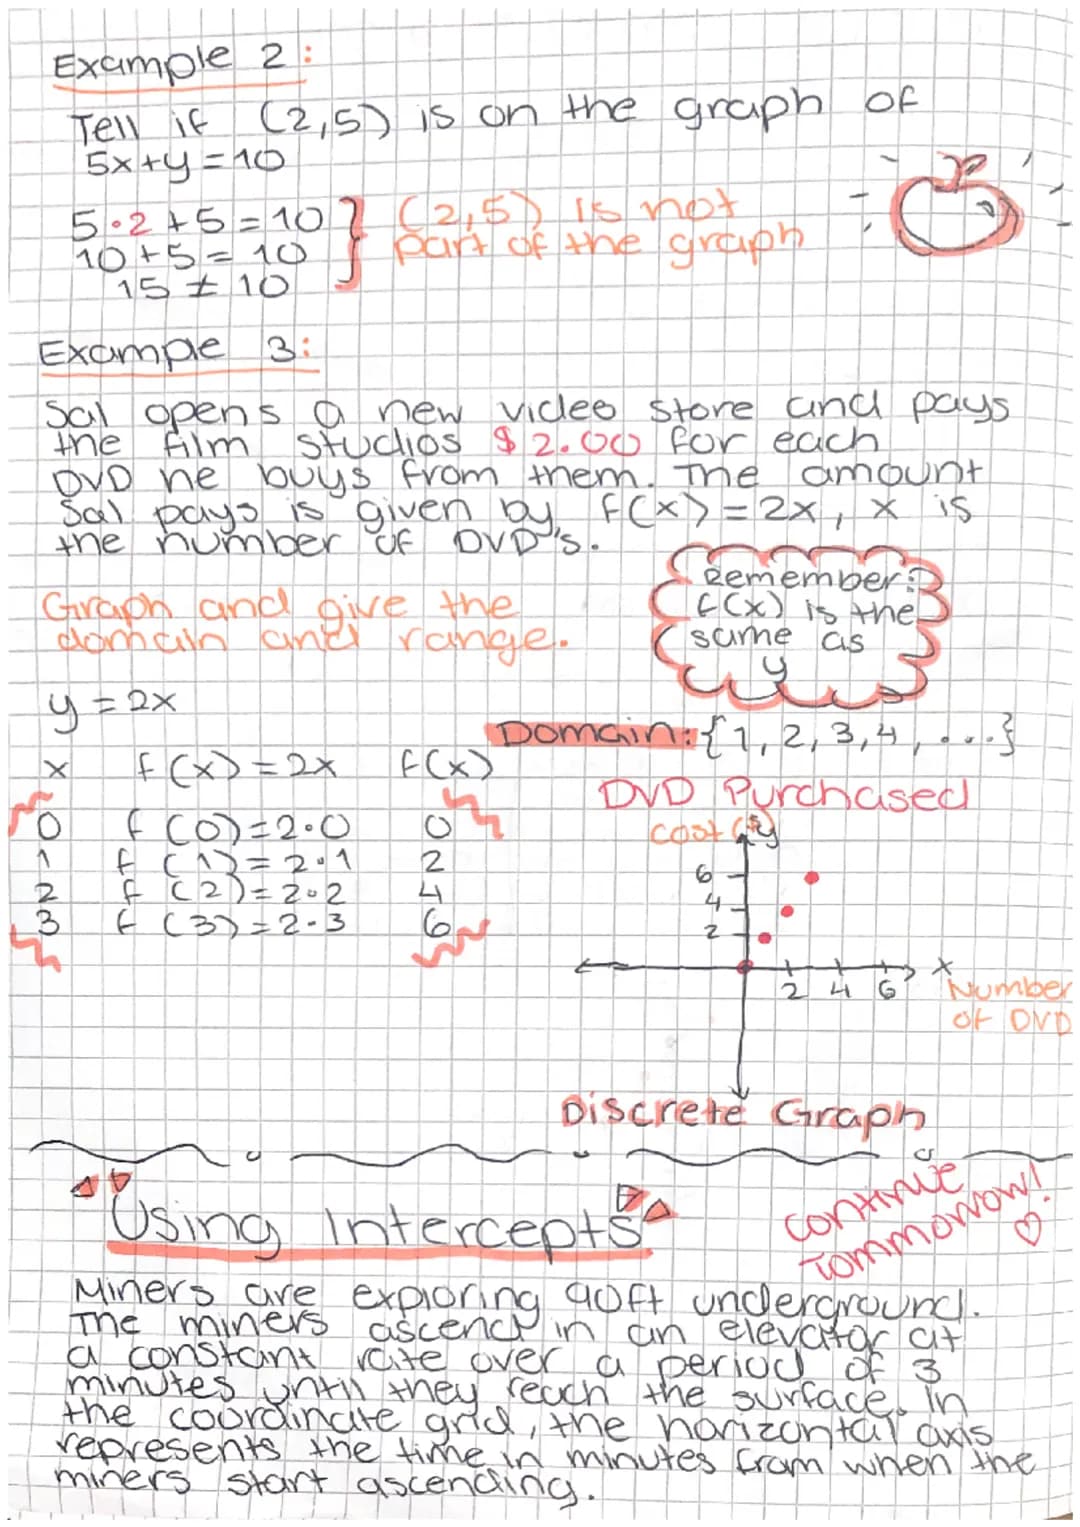 Example 2:
Tell if (2,5) is on the graph of
5x+y=10
5·2+5=10
10+5=10
15≠10
(2,5) is not
part of the graph
Example 3:
Sal opens a new video store and pays
the film studios $2.00 for each
DVD he buys from them. The amount
Sal pays is given by f(x)=2x, x is
the number of DVD's.
Remember:
f(x) is the
same as
y
Graph and give the
domain and range.
y=2x
Domain:{1,2,3,4, ...}
x f(x)=2x f(x)
0 f(0)=2·0 0
1 f(1)=2·1 2
2 f(2)=2·2 4
3 f(3)=2·3 6
DVD Purchased
Cost ($) y
6
4
2
2 4 6 x
Number
of DVD
Discrete Graph
continue
Tommorow!
Using Intercepts
Miners are exploring 90ft underground.
The miners ascend in an elevator at
a constant rate over a period of 3
minutes until they reach the surface. In
the coordinate grid, the horizontal axis
represents the time in minutes from when the
miners start ascending.